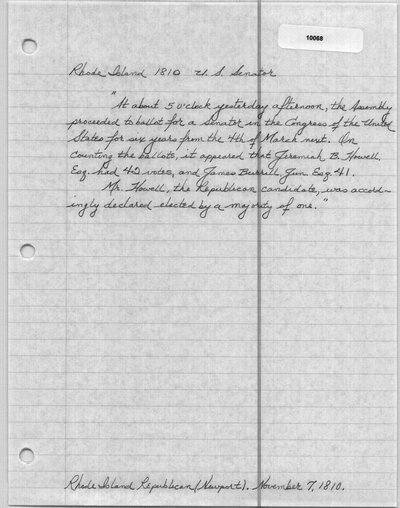 10068
Rhode Island 1810 U. S. Senator
"At about 5 o'clock yesterday afternoon, the Assembly
proceeded to ballot for a Senator in the Congress of the United
States for six years from the 4th of March next. On
counting the ballots, it appeared that Jeremiah B. Howell,
Esq. had 42 votes, and James Burrill Jun. Esq. 41.
Mr. Howell, the Republican candidate, was accord-
ingly declared elected by a majority of one."
Rhode Island Republican (Newport). November 7, 1810.